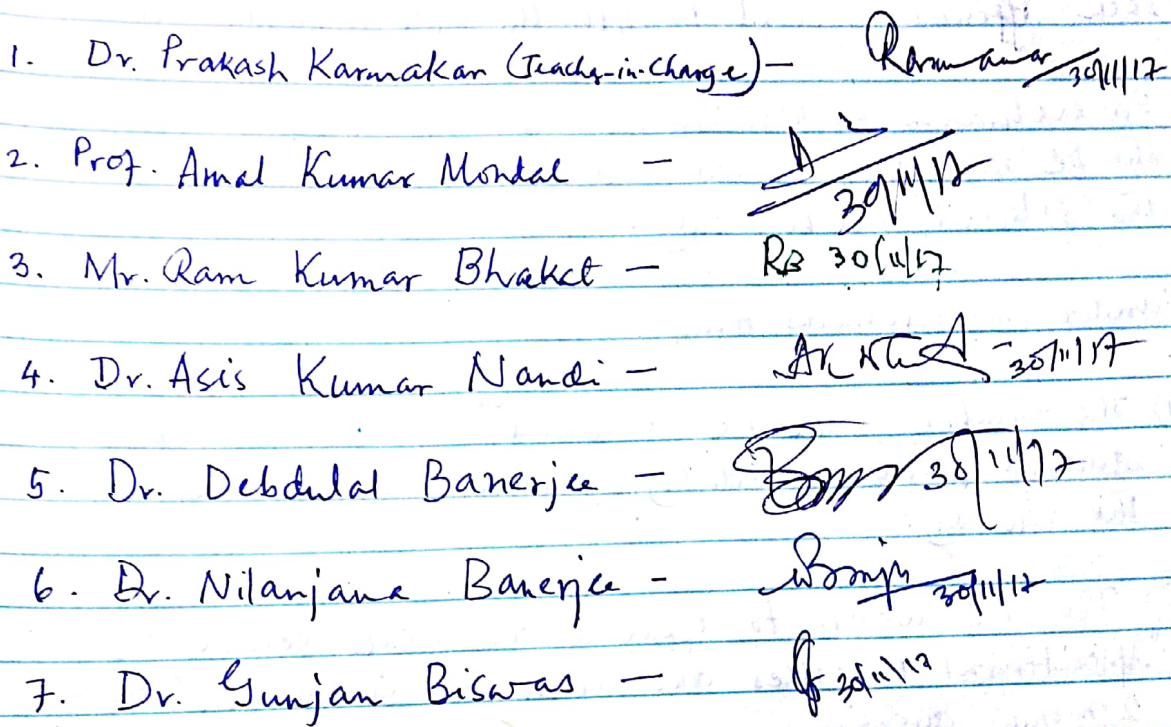 1. Dr. Prakash Karmakar (Teacher-in-Charge) - 30/11/17
2. Prof. Amal Kumar Mondal - 30/11/17
3. Mr. Ram Kumar Bhakat - RB 30/11/17
4. Dr. Asis Kumar Nandi - 30/11/17
5. Dr. Debdulal Banerjee - 30/11/17
6. Dr. Nilanjana Banerjee - 30/11/17
7. Dr. Gunjan Biswas - 30/11/17